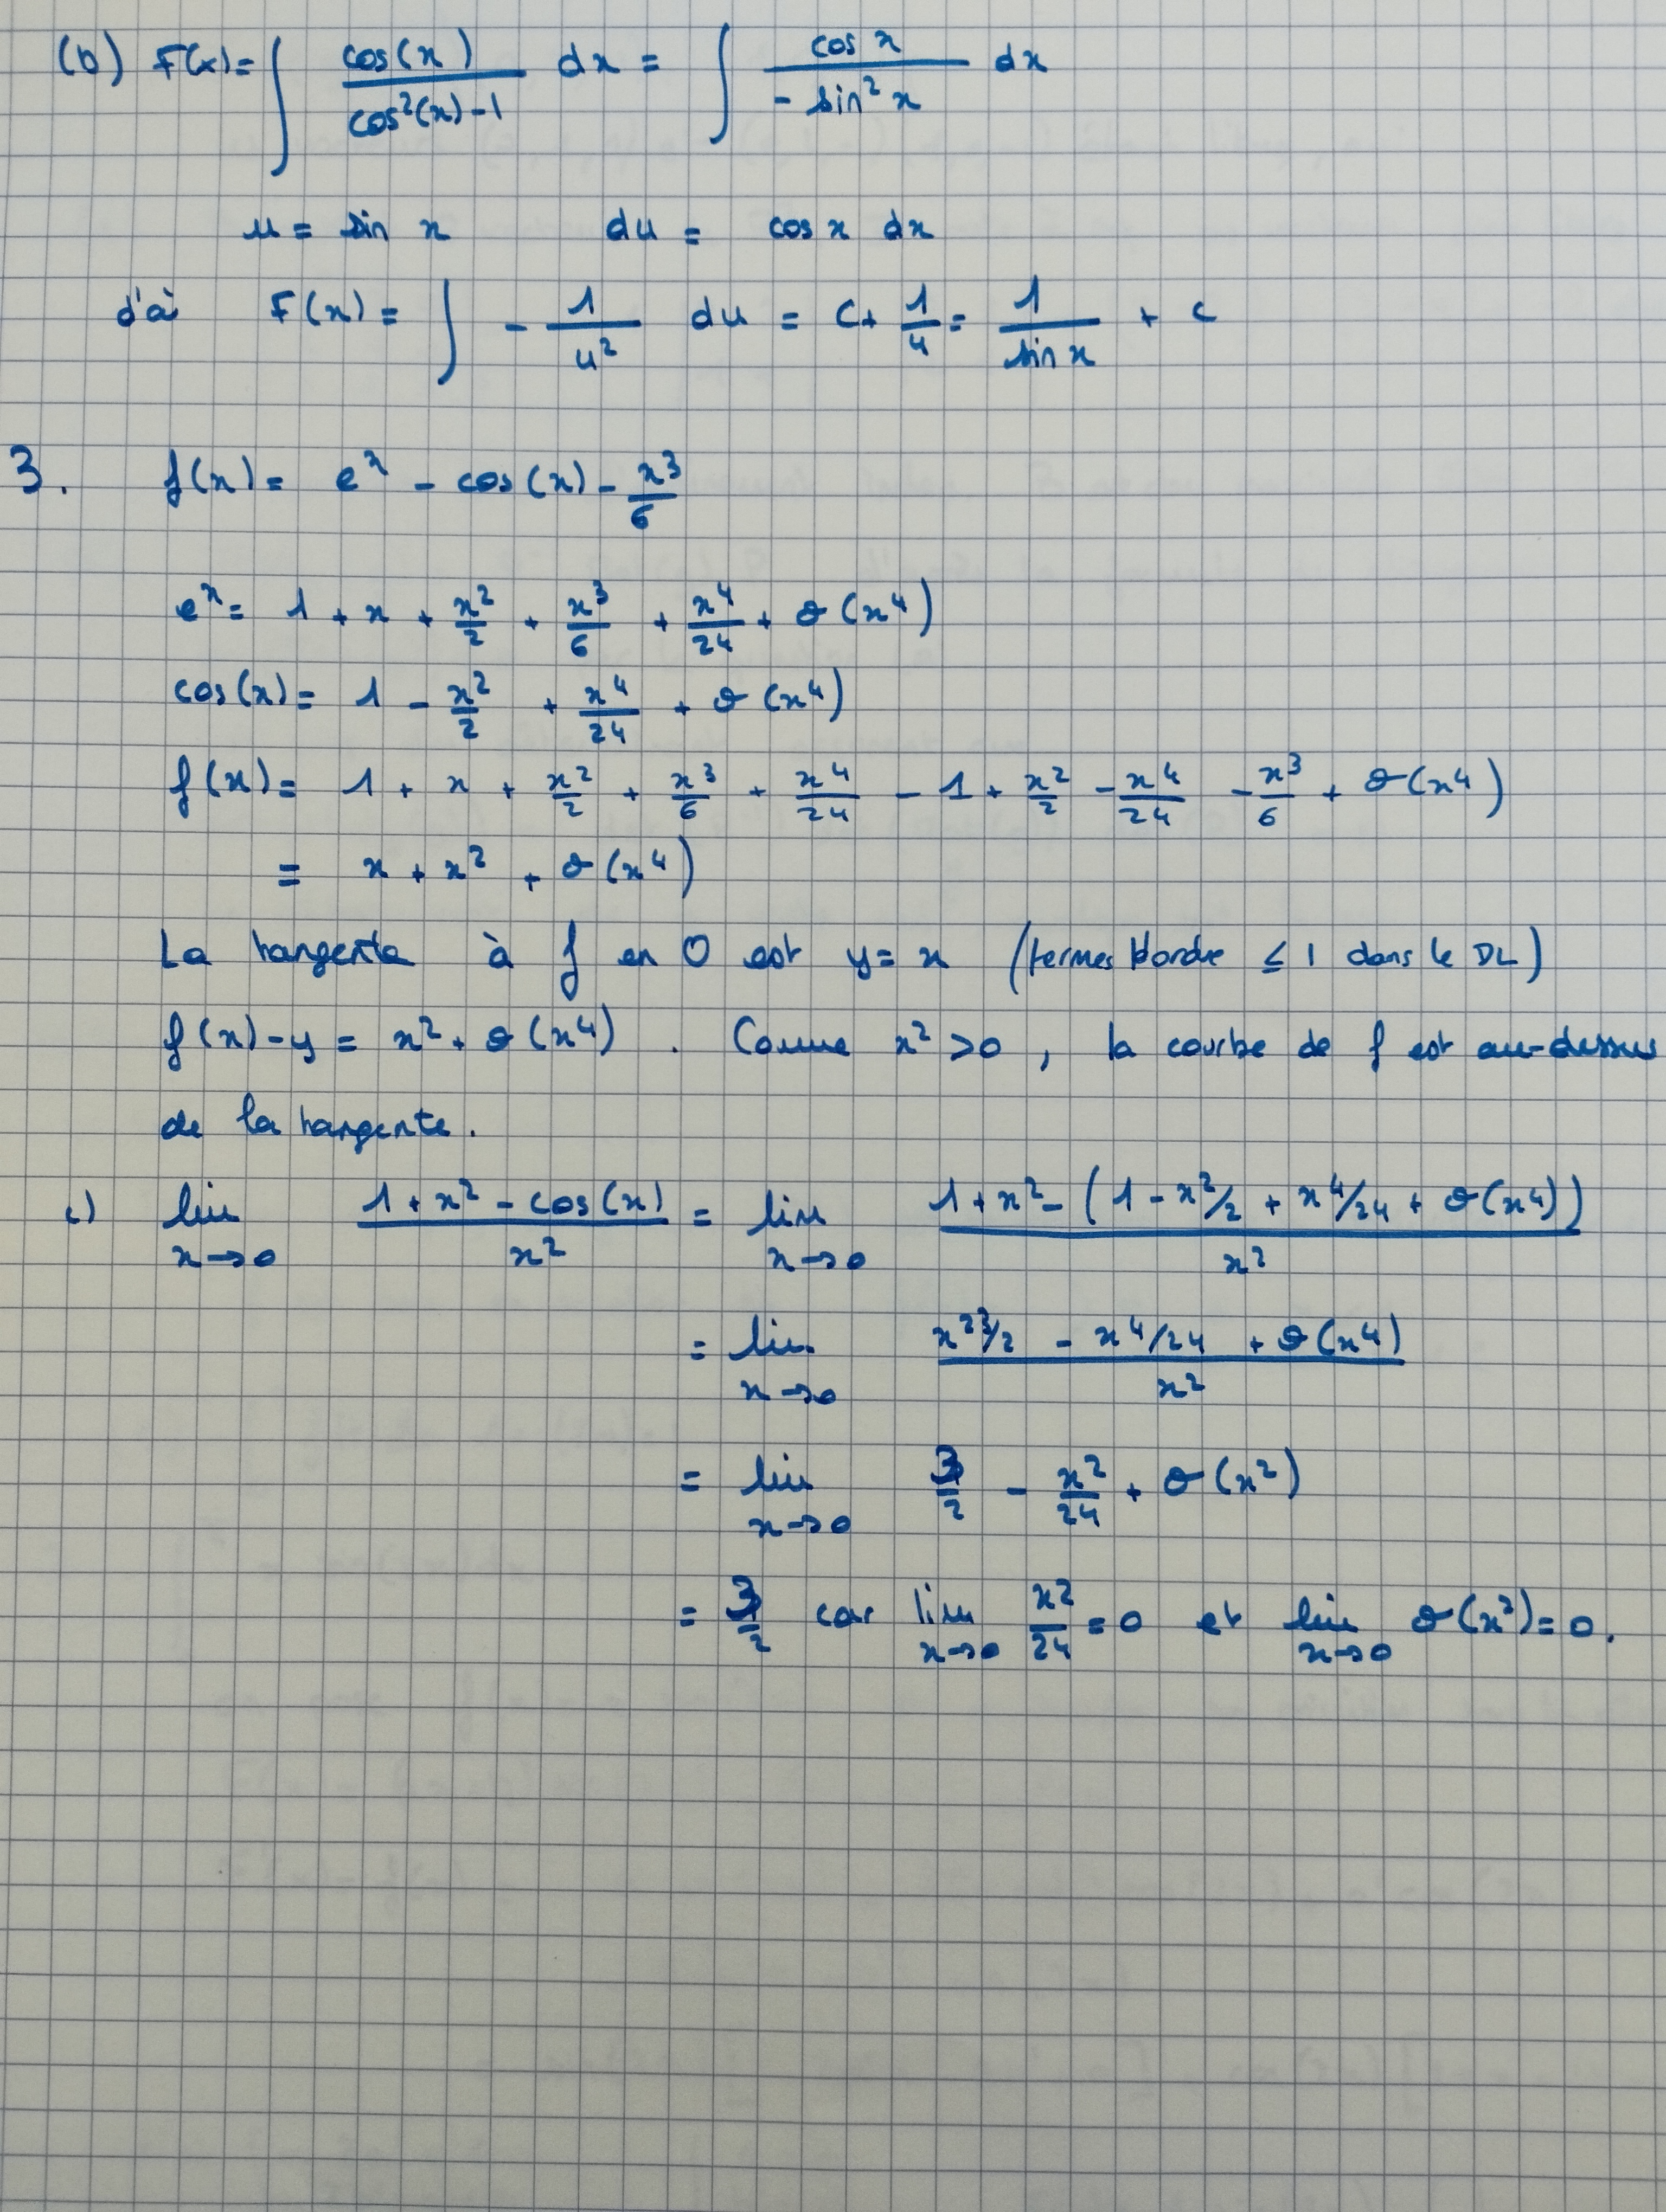 (b) F(x) = ∫ cos(x) / (cos²(x) - 1) dx = ∫ cos x / (- sin² x) dx
u = sin x du = cos x dx
d'où F(x) = ∫ - 1/u² du = C + 1/u = 1/sin x + C
3. f(x) = e^x - cos(x) - x³/6
e^x = 1 + x + x²/2 + x³/6 + x⁴/24 + o(x⁴)
cos(x) = 1 - x²/2 + x⁴/24 + o(x⁴)
f(x) = 1 + x + x²/2 + x³/6 + x⁴/24 - 1 + x²/2 - x⁴/24 - x³/6 + o(x⁴)
= x + x² + o(x⁴)
La tangente à f en 0 est y = x (termes d'ordre ≤ 1 dans le DL)
f(x) - y = x² + o(x⁴). Comme x² > 0, la courbe de f est au-dessus
de la tangente.
c) lim x→0 (1 + x² - cos(x)) / x² = lim x→0 (1 + x² - (1 - x²/2 + x⁴/24 + o(x⁴))) / x²
= lim x→0 (x² 3/2 - x⁴/24 + o(x⁴)) / x²
= lim x→0 3/2 - x²/24 + o(x²)
= 3/2 car lim x→0 x²/24 = 0 et lim x→0 o(x²) = 0.